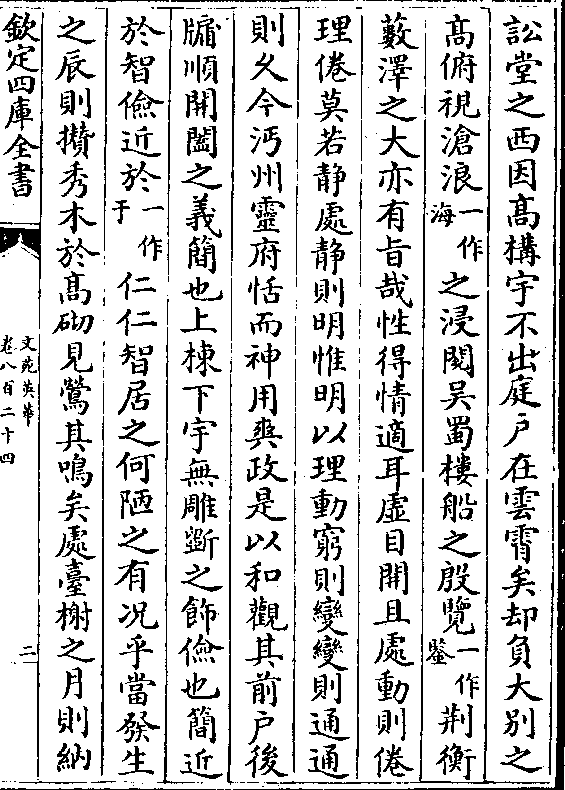 訟堂之西因高構宇不出庭戶在雲霄矣却負大别之
髙俯視滄浪一作海之浸閱吳蜀樓船之殷覽一作鑒荆衡
藪澤之大亦有旨哉性得情適耳虛目開且處動則倦
理倦莫若静處静則明惟明以理動窮則變變則通通
則久今沔州靈府恬而神用爽政是以和觀其前户後
牖順開闔之義簡也上棟下宇無雕斵之飾儉也簡近
於智儉近於一作于仁仁智居之何陋之有况乎當發生
之辰則攢秀木於髙砌見鶯其鳴矣處臺榭之月則納
欽定四庫全書
文苑英華
卷八百二十四
二